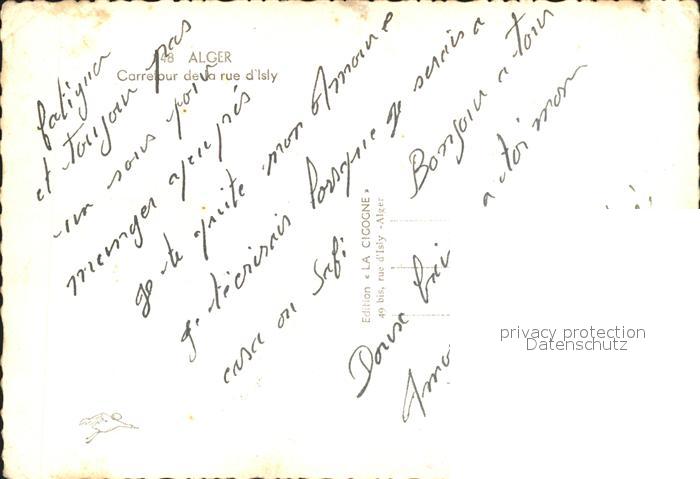 48 ALGER
Carrefour de la rue d'Isly
fatiguer
et toujour pas
un sous pour
menger apeuprés
Je te quite mon Amour
Je t'écrirais lorsque je serais a
casa ou Safi
Bonjour a tour
a toi mon
Douse
Amo
Edition « LA CIGOGNE »
49 bis, rue d'Isly - Alger
privacy protection
Datenschutz